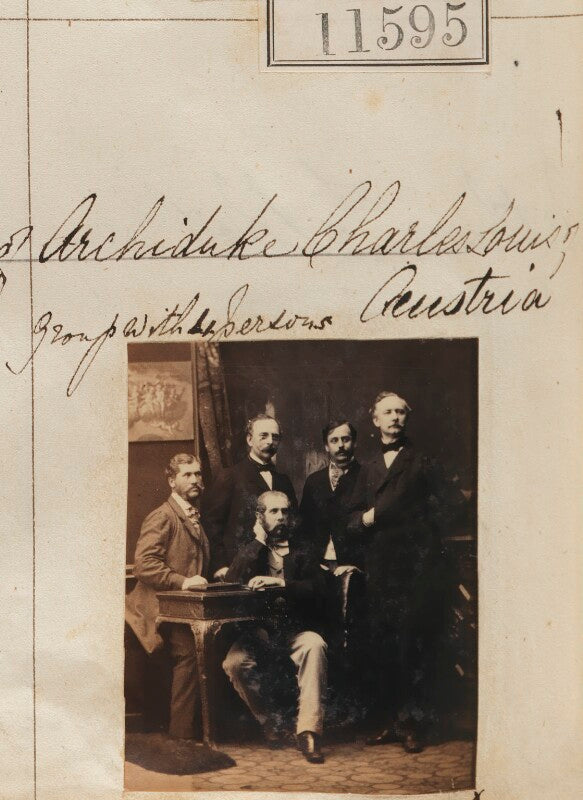 11595
Archiduke Charles Louis
Austria
group with 4 persons